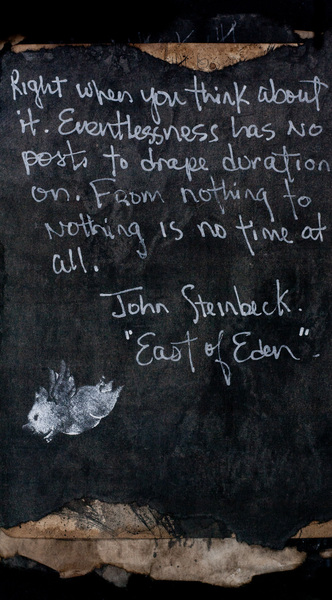 Right when you think about
it. Eventlessness has no
posts to drape duration
on. From nothing to
nothing is no time at
all.
John Steinbeck.
"East of Eden".